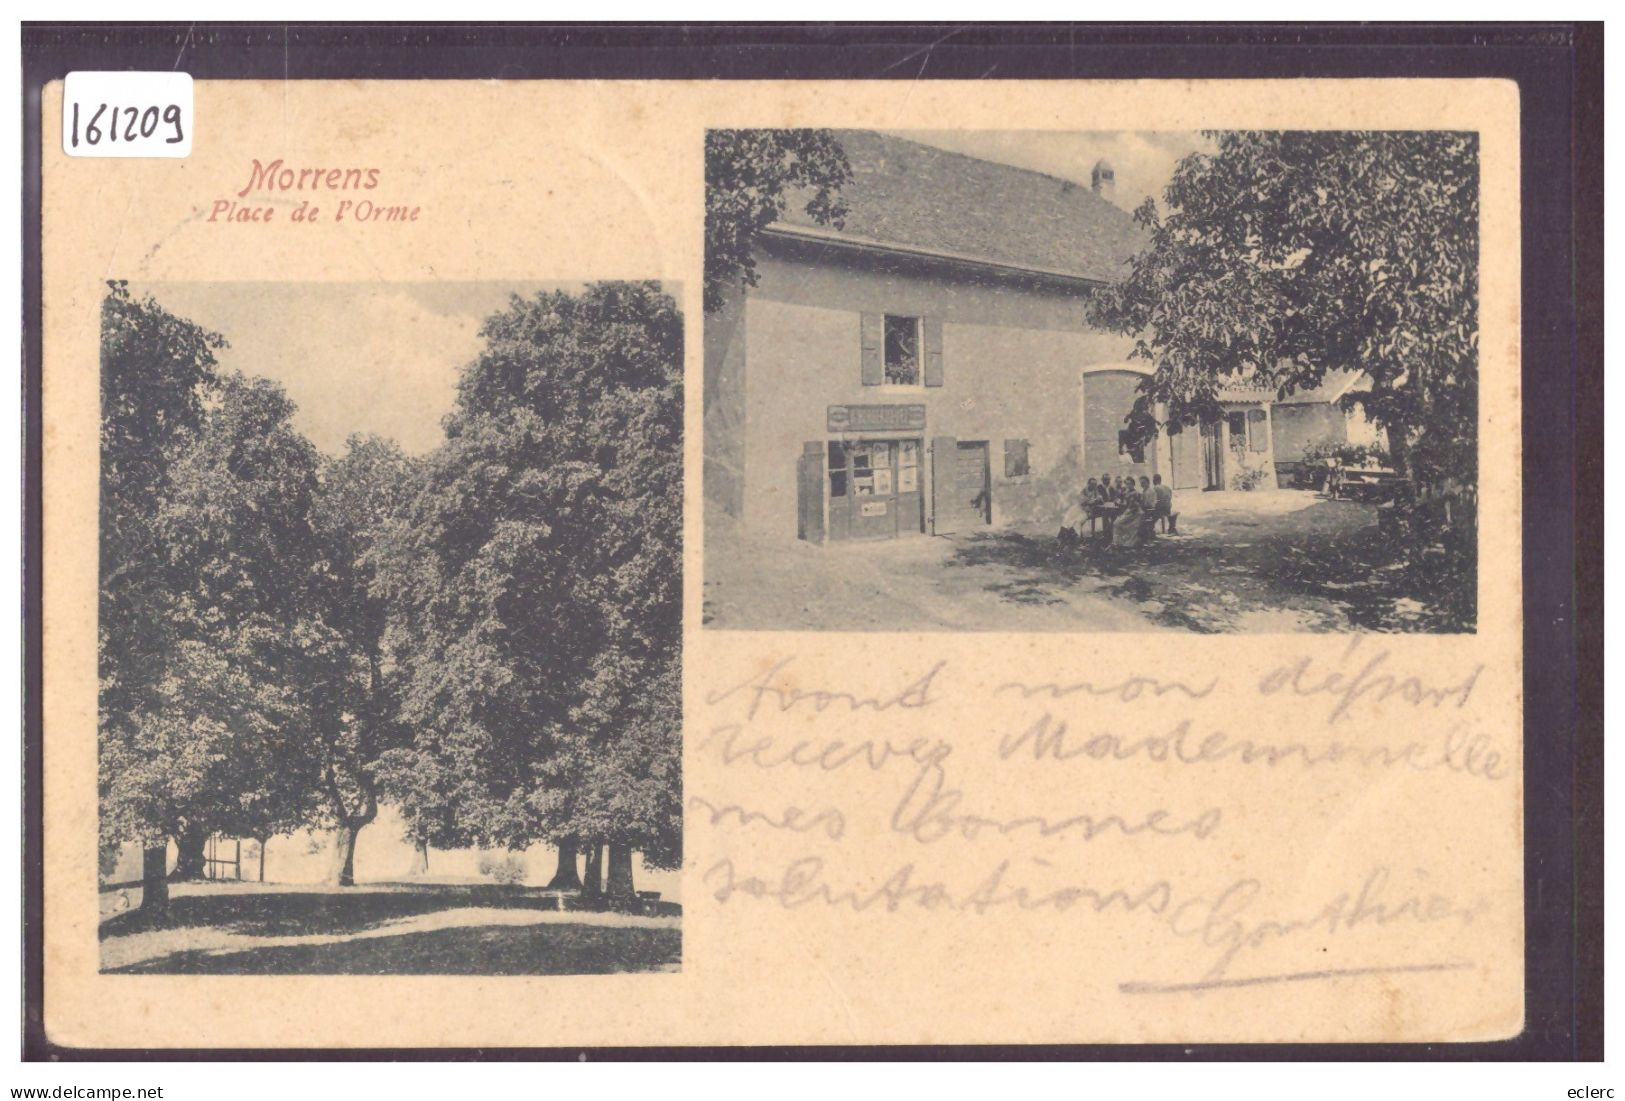 161209
Morrens
Place de l'Orme
Avant mon départ
recevez Mademoiselle
mes bonnes
salutations Gonthier
eclerc
www.delcampe.net